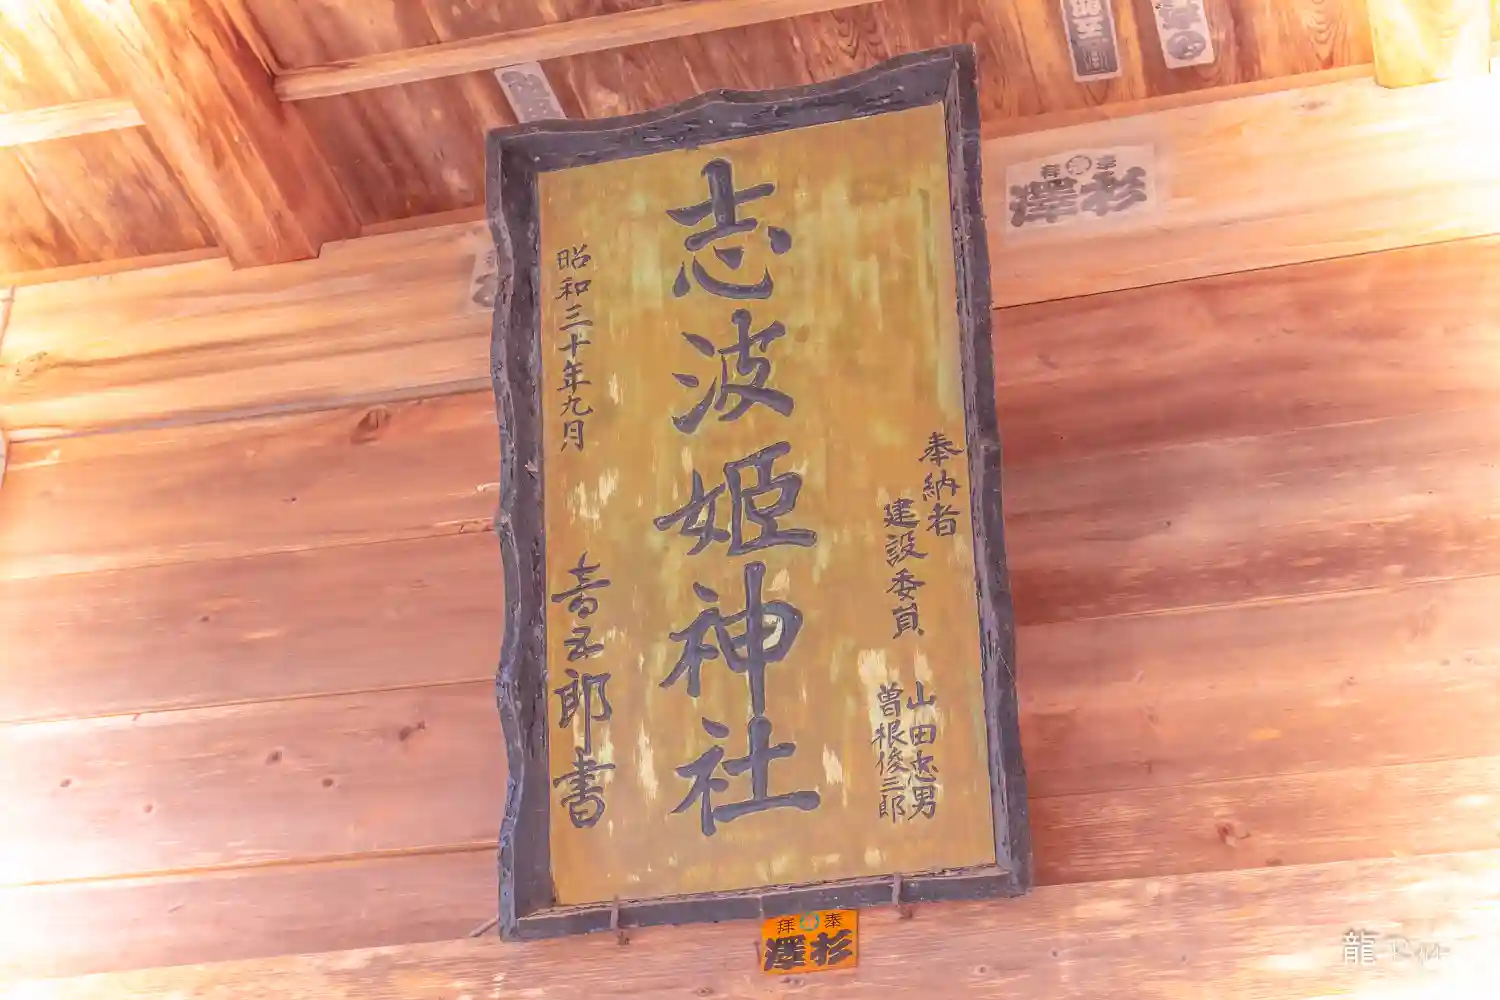 志波姫神社
奉納者
建設委員
山田忠男
曽根俊三郎
昭和三十年九月
音五郎書
奉拝
杉澤
奉拝
杉澤
龍